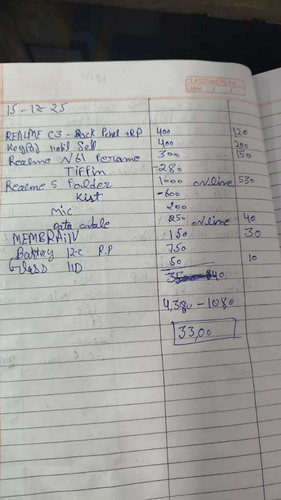 CLASSMATE
15-12-25
REALME C3 - Back Panel + RP 400 120
KeyPad Mobil Sel 400 200
Realme N61 Ferame 300 150
Tiffin -280
Realme 5 Folder 1000 online 530
-600
Mic 200
Data cable 250 online 40
MEMBRAIN 150 30
Battery 12-C R.P 750
Glass 11D 50 10
4,380 - 1080
33,00